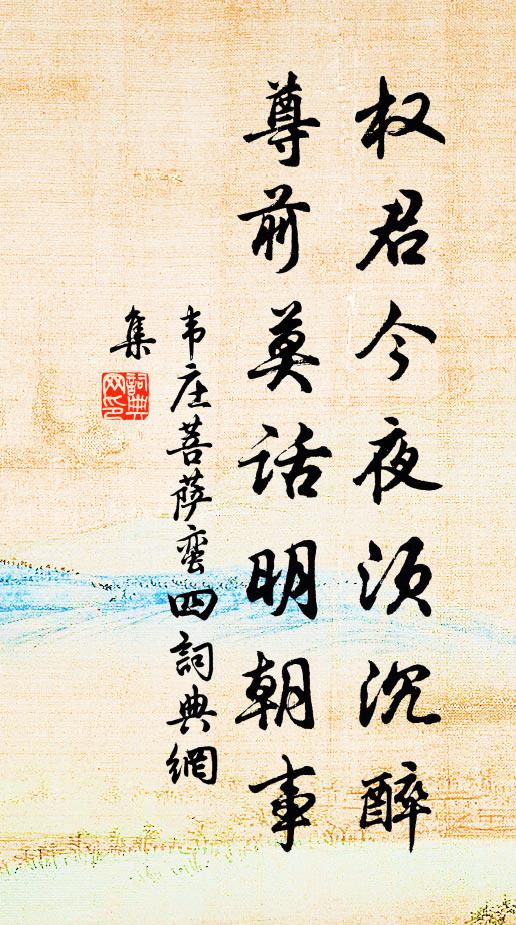 权君今夜须沉醉
尊前莫话明朝事
韦庄菩萨蛮四詞典網
集
詞典網印